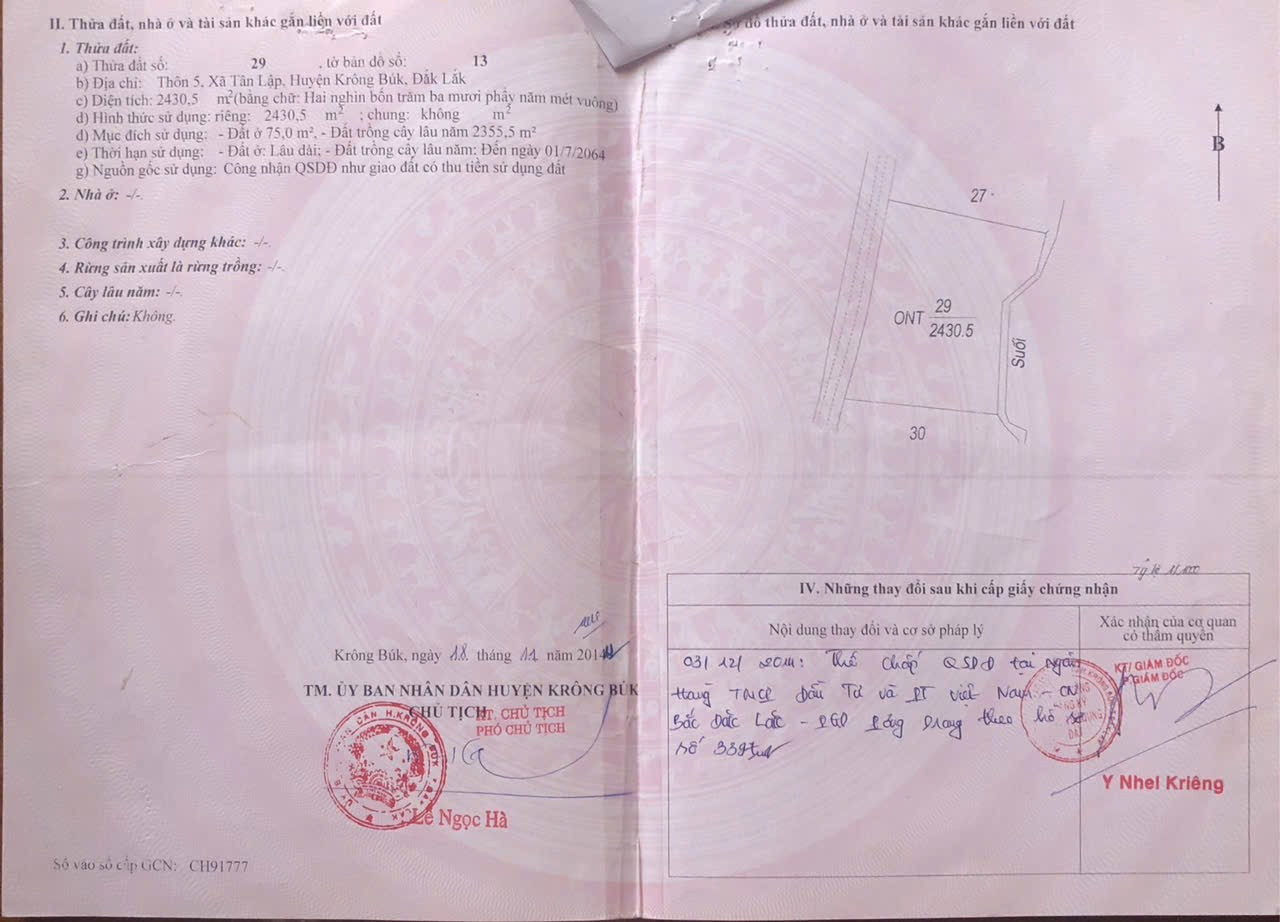 II. Thửa đất, nhà ở và tài sản khác gắn liền với đất
1. Thửa đất:
a) Thửa đất số: 29 , tờ bản đồ số: 13
b) Địa chỉ: Thôn 5, Xã Tân Lập, Huyện Krông Búk, Đắk Lắk
c) Diện tích: 2430,5 m²(bằng chữ: Hai nghìn bốn trăm ba mươi phẩy năm mét vuông)
d) Hình thức sử dụng: riêng: 2430,5 m² ; chung: không m²
đ) Mục đích sử dụng: - Đất ở 75,0 m², - Đất trồng cây lâu năm 2355,5 m²
e) Thời hạn sử dụng: - Đất ở: Lâu dài; - Đất trồng cây lâu năm: Đến ngày 01/7/2064
g) Nguồn gốc sử dụng: Công nhận QSDĐ như giao đất có thu tiền sử dụng đất
2. Nhà ở: -/-.
3. Công trình xây dựng khác: -/-.
4. Rừng sản xuất là rừng trồng: -/-.
5. Cây lâu năm: -/-.
6. Ghi chú: Không.
Krông Búk, ngày 18 tháng 11 năm 2014
TM. ỦY BAN NHÂN DÂN HUYỆN KRÔNG BÚK
CHỦ TỊCH
KT. CHỦ TỊCH
PHÓ CHỦ TỊCH
Lê Ngọc Hà
Số vào sổ cấp GCN: CH91777
đồ thửa đất, nhà ở và tài sản khác gắn liền với đất
B
27
ONT 29
2430.5
Suối
30
Tỷ lệ
IV. Những thay đổi sau khi cấp giấy chứng nhận
Nội dung thay đổi và cơ sở pháp lý
Xác nhận của cơ quan
có thẩm quyền
03/12/2014: Thế chấp QSDĐ tại Ngân
hàng TMCP Đầu Tư và PT Việt Nam - CN
Bắc Đắk Lắk - PGD Pơng Drang theo hồ sơ
số
KT/ GIÁM ĐỐC
P. GIÁM ĐỐC
Y Nhel Kriêng